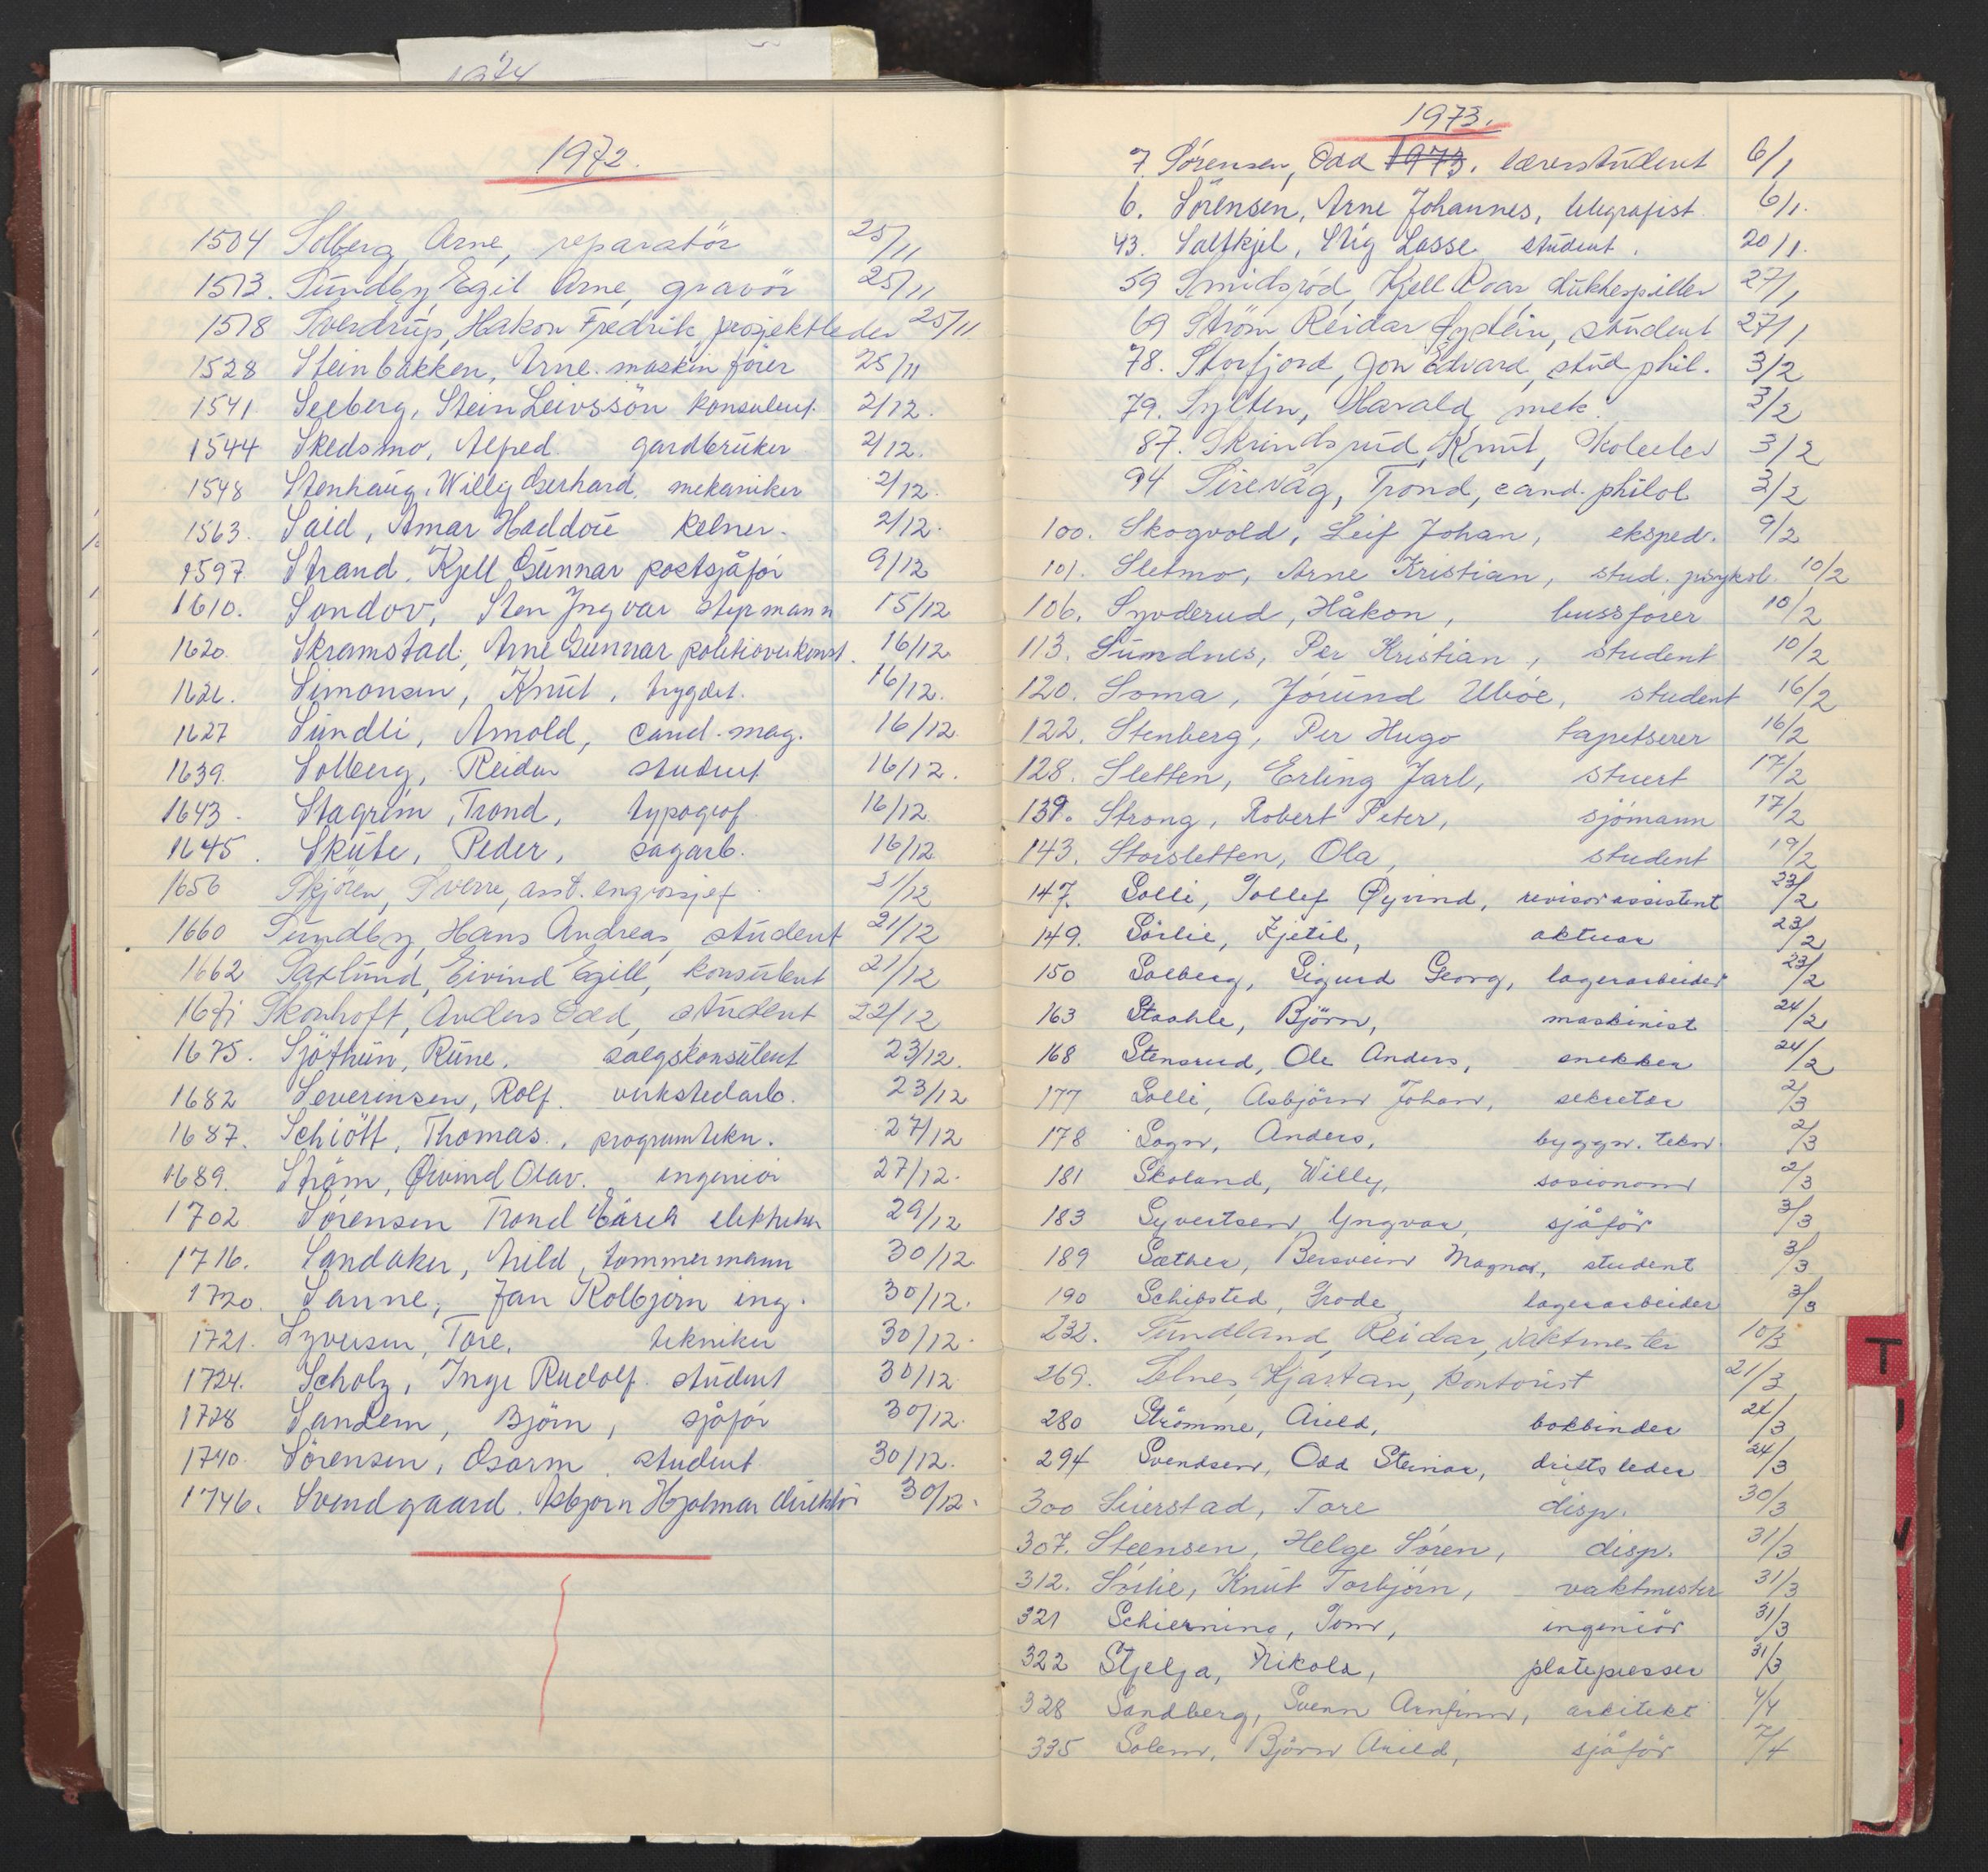 1974
1972.
1504 Solberg, Arne, reparatör 25/11
1513. Sundby, Egil Arne, gravör 25/11
1518 Sverdrup, Hakon Fredrik, prosjektleder 25/11
1528 Steinbakken, Arne. maskinförer 25/11
1541 Seeberg, Stein Leivssön konsulent. 2/12.
1544 Skedsmo, Alfred. gardbruker 2/12.
1548 Stenhaug, Willy Gerhard, mekaniker 2/12.
1563. Said, Amar Haddou kelner. 2/12.
1597 Strand, Kjell Gunnar postsjåför 9/12
1610. Sandov, Sten Ingvar styrmann 15/12
1620. Skramstad, Arne Gunnar politioverkonst. 16/12
1621. Simonsen, Knut, trygdet. 16/12.
1627 Sundli, Arnold, cand. mag. 16/12.
1639. Solberg, Reidar student 16/12.
1643. Stagrim, Trond, typograf 16/12
1645. Skute, Peder, sagarb. 16/12
1656 Skjören, Sverre, asst. engrossjef. 21/12
1660 Sundby, Hans Andreas, student 21/12
1662 Saxlund, Eivind Egill, konsulent 21/12
1671 Skonhoft, Anders Odd, student 22/12
1675. Sjöthun, Rune. salgskonsulent 23/12.
1682 Severinsen, Rolf. verkstedarb. 23/12
1687. Schiött, Thomas., programtekn. 27/12
1689. Ström, Øivind Olav. ingeniör 27/12.
1702 Sörensen Trond Eirik elektriker 29/12
1716. Sandaker, Arild, tömmermann 30/12.
1720. Sanne, Jan Kolbjørn ing. 30/12.
1721. Syversen, Tore, tekniker 30/12.
1724. Scholz, Inge Rudolf. student 30/12
1728 Sandem, Björn, sjåför 30/12.
1740. Sörensen, Osarm. student 30/12.
1746. Svendgaard. Asbjørn Hjalmar direktör 30/12.
1973.
7. Sörensen, Odd 1973. lærerstudent 6/1
6. Sörensen, Arne Johannes, telegrafist 6/1.
43. Saltkjel, Stig Lasse student. 20/1.
59 Smidsröd, Kjell Roar dukkespiller 27/1
69 Ström Reidar Øystein, student 27/1
78. Storfjord, Jon Edvard, stud phil. 3/2
79. Sylten, Harald, mek. 3/2
87. Skrindsrud, Knut, Skoleelev 3/2
94 Sirevåg, Trond, cand. philol 3/2
100. Skogvold, Leif Johan, eksped. 9/2
101. Sletmo, Arne Kristian, stud. psykol. 10/2
106. Syvderud, Håkon, bussfører 10/2
113. Sumdnes, Per Kristian, student 10/2
120. Soma, Jórund Ubøe, student 16/2
122. Stenberg, Per Hugo tapetserer 16/2
128. Sletten, Erling Jarl, stuert 17/2
139. Strong, Robert Peter, sjömann 17/2
143. Storsletten, Ola, student 19/2
147. Solli, Tollef Øyvind, revisorassistent 23/2
149. Sörlie, Kjetil, aktuar 23/2
150 Solberg, Sigurd Georg, lagerarbeider 23/2
163 Staahle, Björn, maskinist 24/2
168 Stensrud, Ole Anders, snekker 24/2
177 Solli, Asbjörn Johan, sekretær 2/3
178 Sogn, Anders, byggn. tekn. 2/3
181 Skoland, Willy, sosionom 2/3
183 Syvertsen Yngvar, sjåför 3/3
189 Sæther, Bersvein Magnar, student 3/3
190 Schibsted, Frode, lagerarbeider 3/3
232. Sundland, Reidar, Vaktmester 10/3
269. Selnes, Kjartan, kontorist 21/3
280 Strömme, Arild, bokbinder 24/3
294 Svendsen, Odd Steinar, driftsleder 24/3
300 Seierstad, Tore disp. 30/3
307. Steensen, Helge Sören, disp. 31/3
312. Sörlie, Knut Torbjörn, vaktmester 31/3
321 Schierning, Tom, ingeniör 31/3
322 Stjelja, Nikola, platepresser 31/3
328 Sandberg, Svenn Arnfinn, arkitekt 4/4
335 Solem, Björn Arild, sjåför 7/4
T